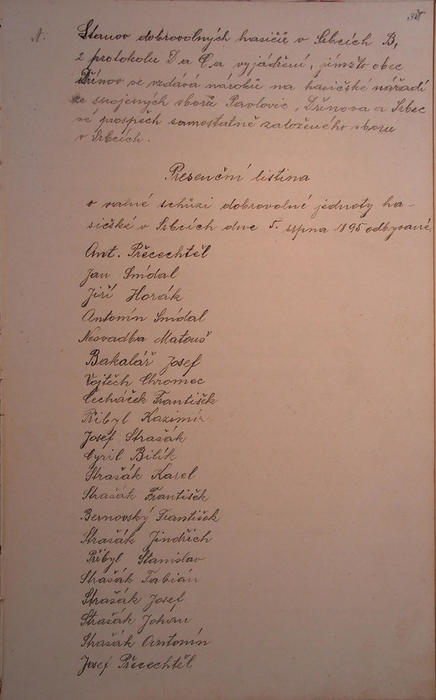 A. Stanov dobrovolných hasičů v Srbcích B,
z protokolu D a C, a vyjádření, jímžto obec
Dřínov se vzdává nároků na hasičské nářadí
ze spojených sborů Pavlovic, Dřínova a Srbec
ve prospěch samostatně založeného sboru
v Srbcích.
Presenční listina
o valné schůzi dobrovolné jednoty ha-
sičské v Srbcích dne 5. srpna 1895 odbývané,
Ant. Přecechtěl
Jan Smídal
Jiří Horák
Antonín Smídal
Nesvadba Matouš
Bakalář Josef
Vojtěch Chromec
Čecháček František
Přibyl Kazimír
Josef Strašák
Cyril Bilík
Strašák Karel
Strašák František
Bernovský František
Strašák Jindřich
Přibyl Stanislav
Strašák Fabián
Strašák Josef
Strašák Johan
Strašák Antonín
Josef Přecechtěl